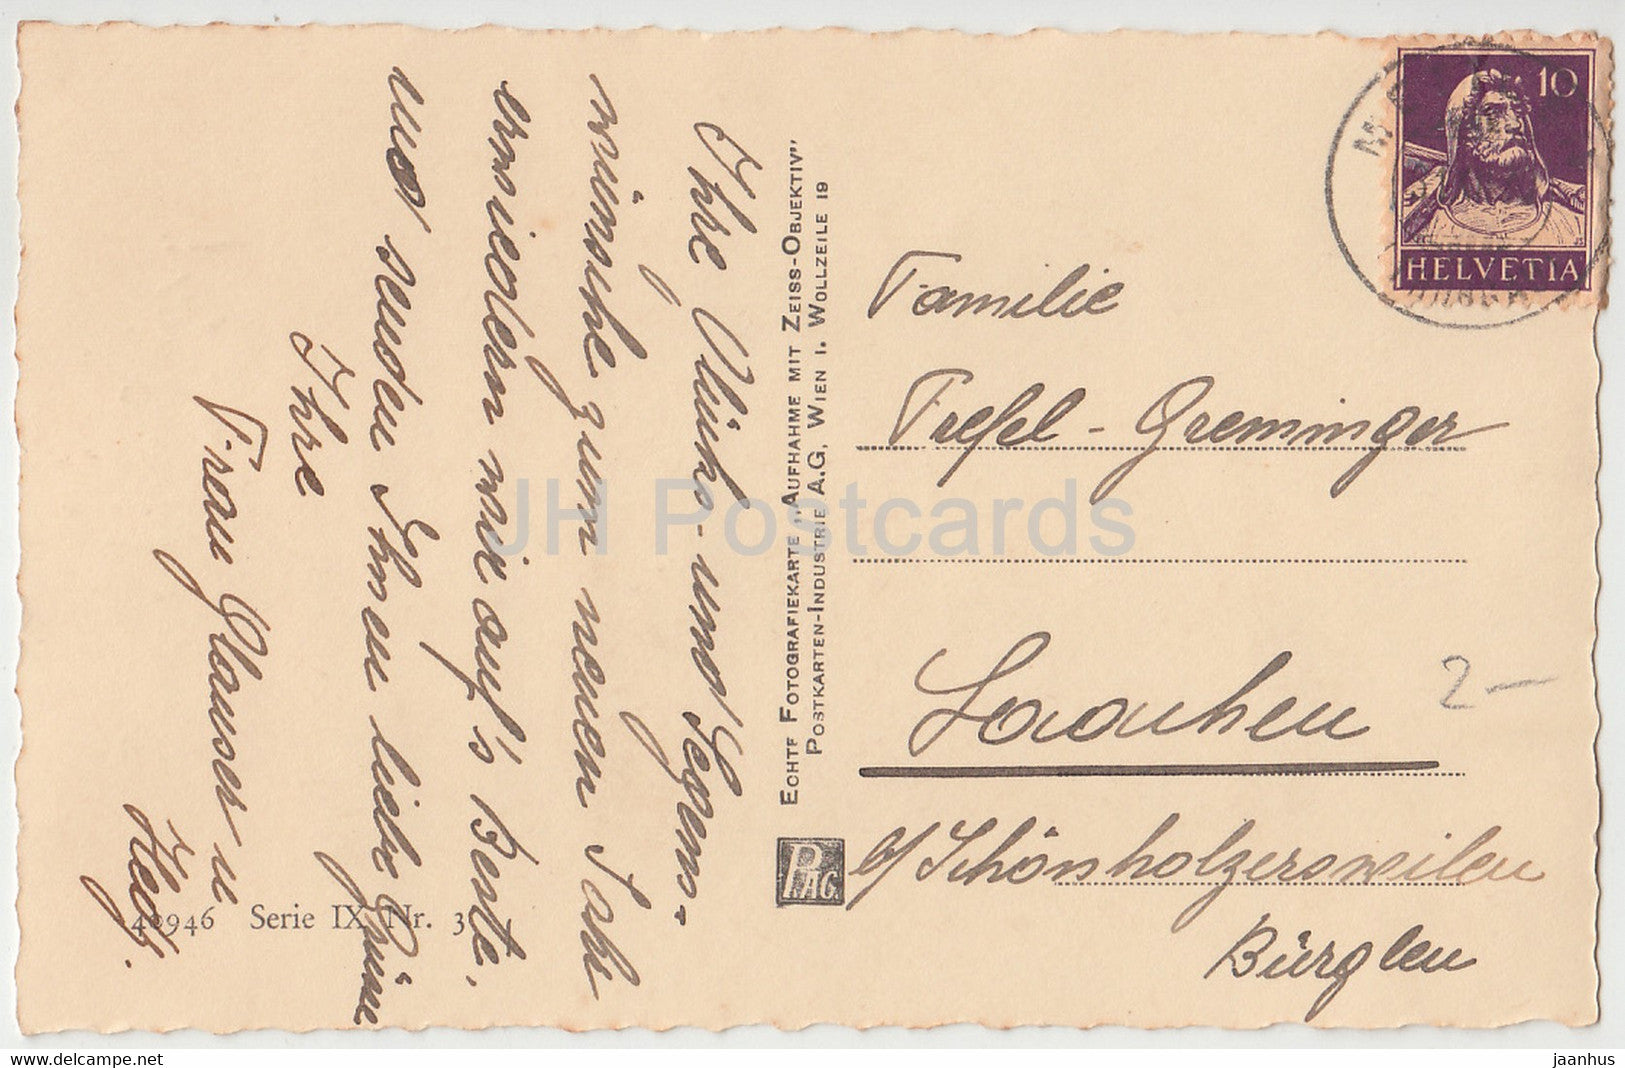 Ihre Glücks- und Segens-
wünsche zum neuen Jahr
erwiedern wir auf's Beste,
und senden Ihnen liebe Grüsse
Ihre
Frau Glauser u
Hedy.
40946 Serie IX Nr. 3
ECHTE FOTOGRAFIEKARTE „AUFHAHME MIT ZEISS-OBJEKTIV"
POSTKARTEN-INDUSTRIE A.G. WIEN I. WOLLZEILE 19
P.AG.
10
HELVETIA
Familie
Greminger
b/ Schönholzerswilen
Bürglen
2 –
JH Postcards
jaanhus